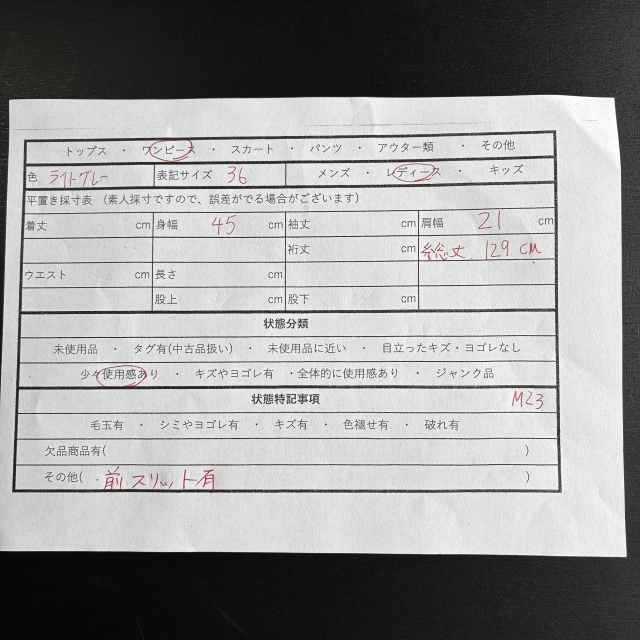 トップス ・ ワンピース ・ スカート ・ パンツ ・ アウター類 ・ その他
色 ライトグレー 表記サイズ 36 メンズ ・ レディース ・ キッズ
平置き採寸表 (素人採寸ですので、誤差がでる場合がございます)
着丈 cm 身幅 45 cm 袖丈 cm 肩幅 21 cm
裄丈 cm 総丈 129 cm
ウエスト cm 長さ cm
股上 cm 股下 cm
状態分類
未使用品 ・ タグ有(中古品扱い) ・ 未使用品に近い ・ 目立ったキズ・ヨゴレなし
少々使用感あり ・ キズやヨゴレ有 ・全体的に使用感あり ・ ジャンク品
状態特記事項 M23
毛玉有 ・ シミやヨゴレ有 ・ キズ有 ・ 色褪せ有 ・ 破れ有
欠品商品有( )
その他( 前スリット有 )